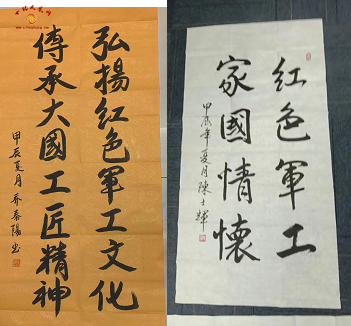 弘揚紅色軍工文化
傳承大國工匠精神
甲辰夏月 乔春陽書
红色軍工
家國情懷
甲辰年夏月陳士輝